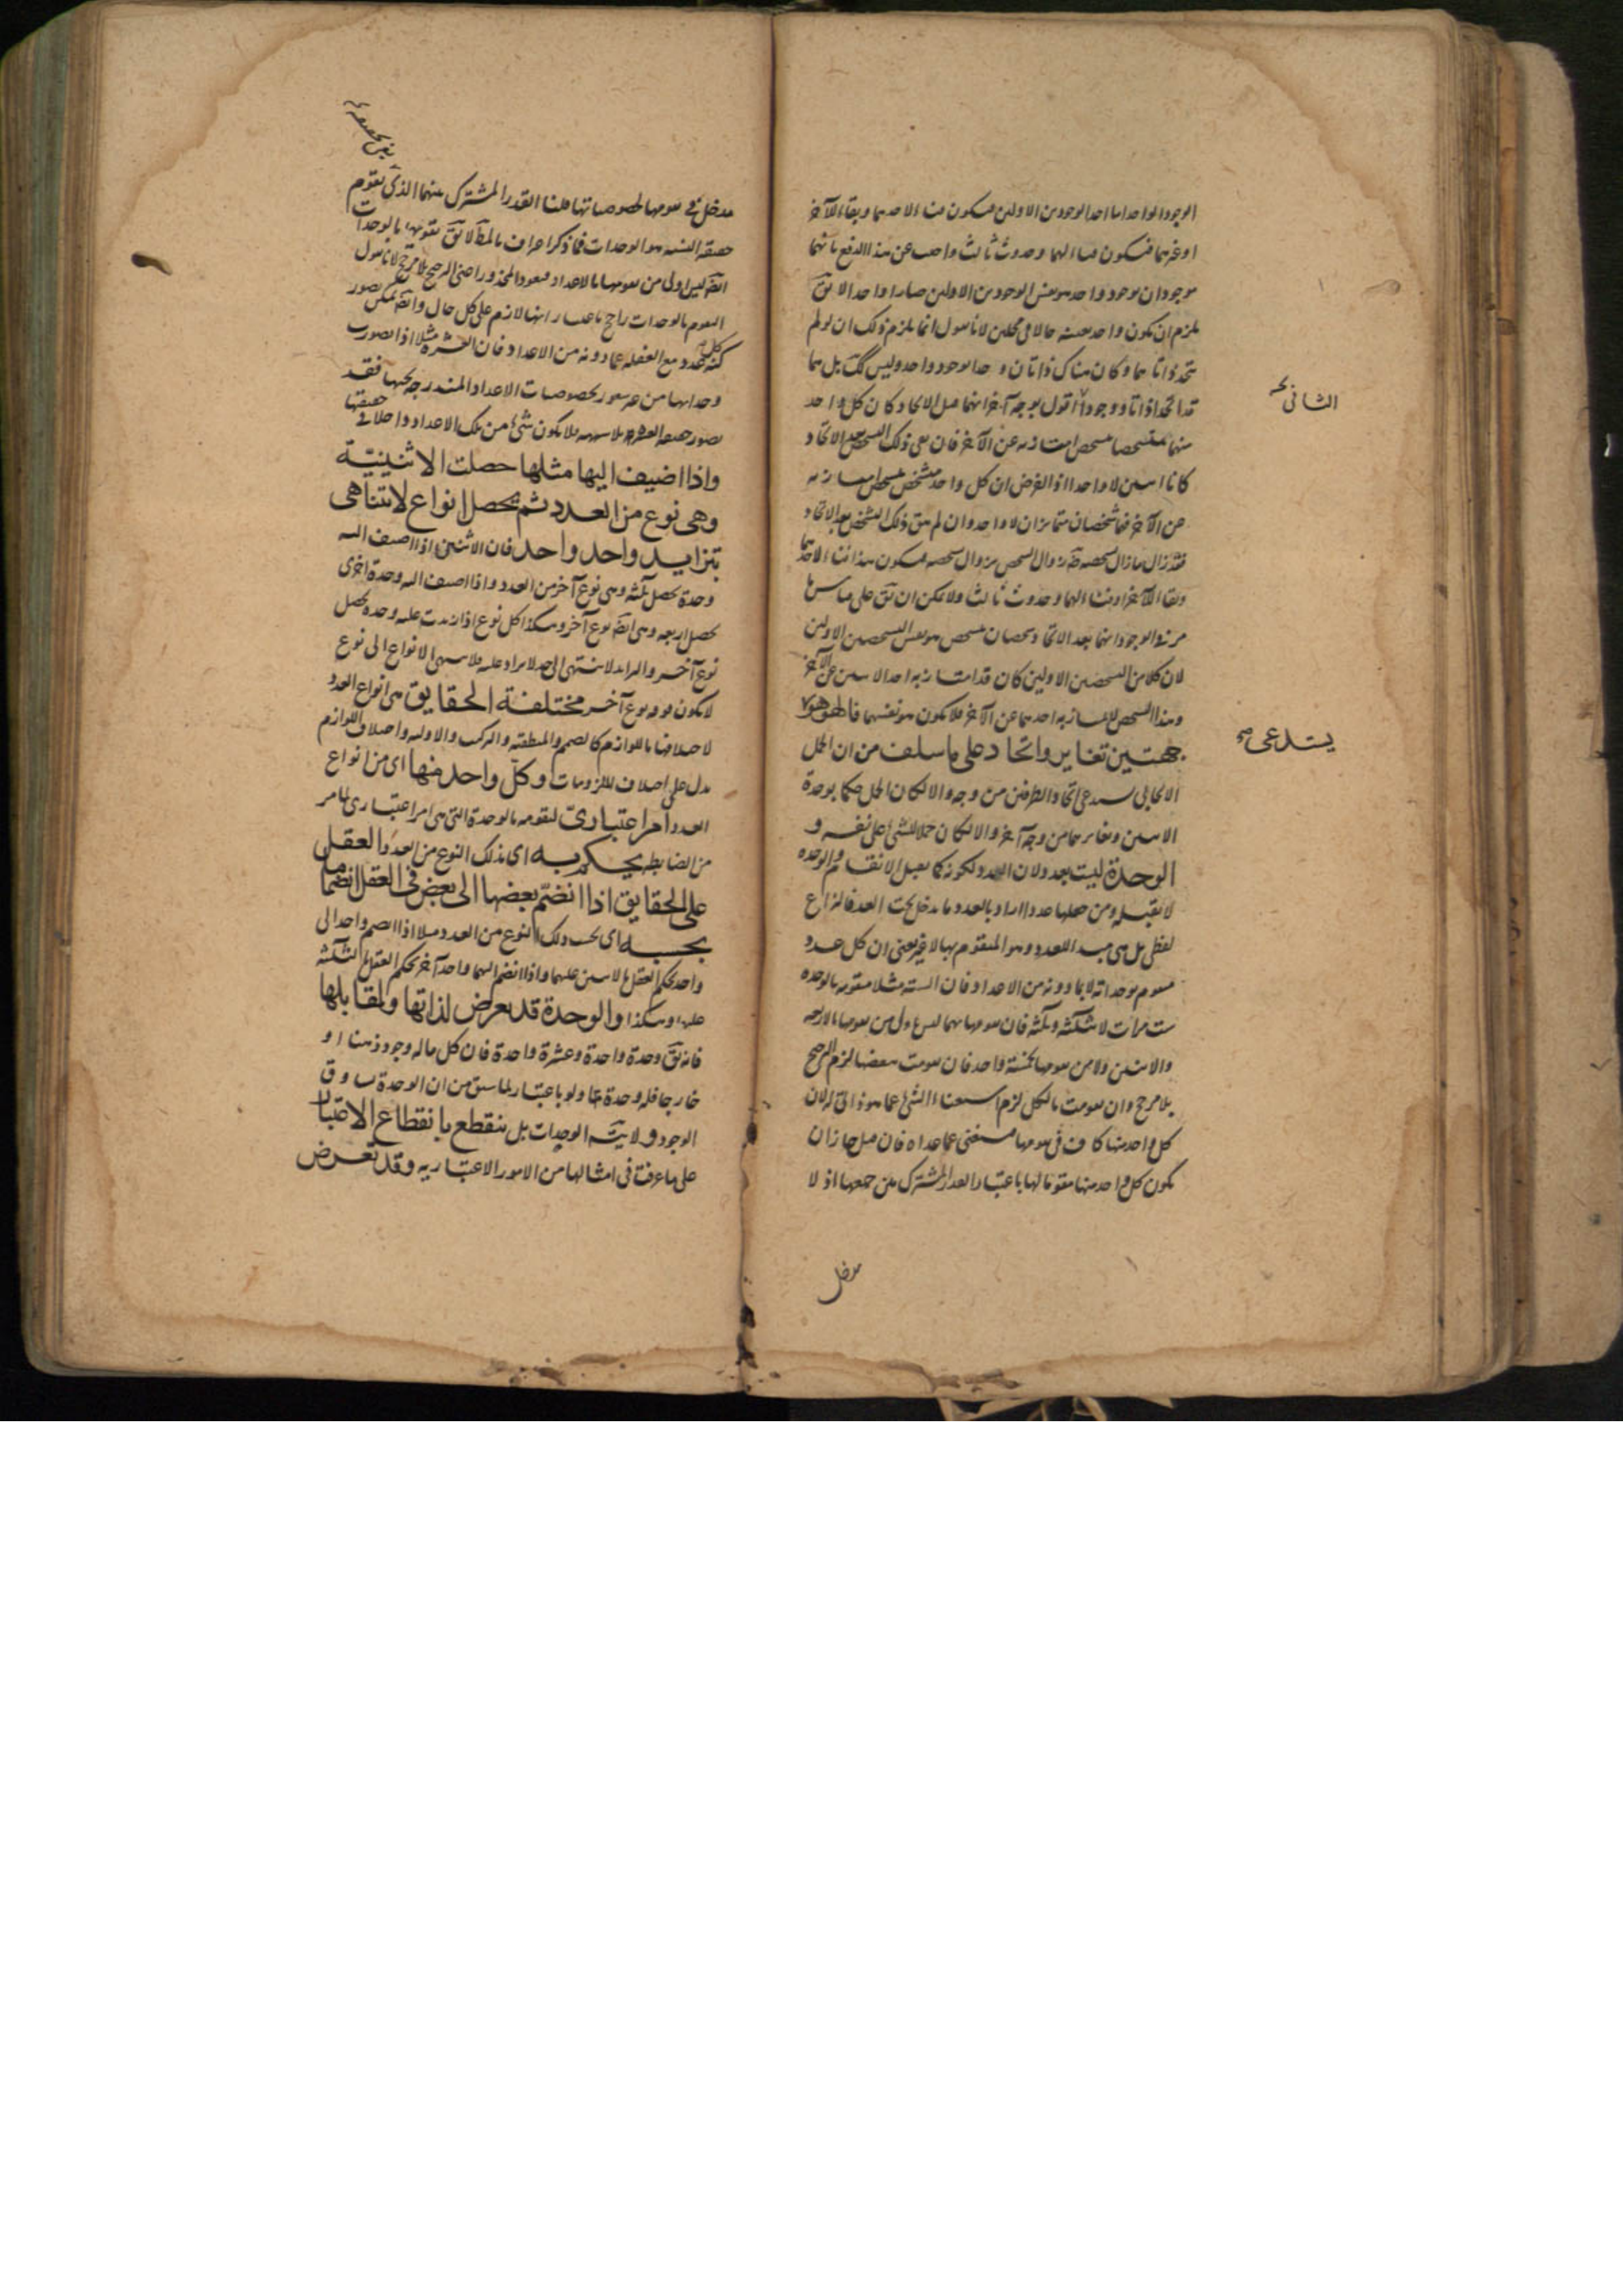 الوجود الواحد اما احد الوجودين الاولين فيكون فناء لاحدهما وبقاء الآخر
او غيرهما فيكون فناء لهما وحدوث ثالث واجيب عن هذا الدفع بانهما
موجودان بوجود واحد هو نفس الوجودين الاولين صارا واحدا لا يق
يلزم ان يكون واحد بعينه حالا فى محلين لانا نقول انما يلزم ذلك ان لو لم
يتحد ذاتاهما وكان هناك ذاتان وجدا بوجود واحد وليس كك بل هما
قد اتحدا ذاتا ووجودا اقول بوجه آخر انهما قبل الاتحاد كان كل واحد
الثانى
منهما متشخصا بتشخص امتاز به عن الآخر فان بقى ذلك التشخص بعد الاتحاد
كانا اثنين لا واحدا اذ الفرض ان كل واحد متشخص بتشخص امتاز به
عن الآخر فهما شخصان متمايزان لا واحد وان لم يبق ذلك التشخص بعد الاتحاد
فقد زال ما زال تشخصه ضرورة زوال الشخص بزوال تشخصه فيكون هذا فناء لاحدهما
وبقاء الآخر او فناء لهما وحدوث ثالث ولا يمكن ان يق على قياس ما
مر فى الوجود انهما بعد الاتحاد متشخصان بتشخص هو نفس التشخصين الاولين
لان كلا من التشخصين الاولين كان قد امتاز به احد الاثنين عن الآخر
وهذا التشخص لا يمتاز به احدهما عن الآخر فلا يكون هو نفسهما فالهوهو
يستدعى صح
جهتين تغاير واتحاد على ما سلف من ان الحمل
الايجابى يستدعى اتحاد الطرفين من وجه والا لكان الحمل حكما بوحدة
الاثنين وتغايرهما من وجه آخر والا لكان حملا للشئ على نفسه و
الوحدة ليست بعدد لان العدد لكونه كما يقبل الانقسام والوحدة
لا تقبله ومن جعلها عددا اراد بالعدد ما يدخل تحت العد فالنزاع
لفظى بل هى مبدء للعدد وهو المتقوم بها لا غير يعنى ان كل عدد
متقوم بوحداته لا بما دونه من الاعداد فان الستة مثلا متقومة بالوحدة
ست مرات لا بثلثة وثلثة فان تقومها بهما ليس اولى من تقومها بالاربعة
والاثنين ولا من تقومها بخمسة وواحد فان تقومت ببعضها لزم الترجيح
بلا مرجح وان تقومت بالكل لزم استغناء الشئ عما هو ذاتى له لان
كل واحد منها كاف فى تقومها فيستغنى عما عداه فان قيل جاز ان
يكون كل واحد منها مقوما لها باعتبار القدر المشترك بين جميعها اذ لا
مدخل
مدخل فى تقومها لخصوصياتها قلنا القدر المشترك بينهما الذى يتقوم
حقيقة الستة هو الوحدات فما ذكر اعتراف بالمط لا يق تقومها بالوحدات
ايضا ليس اولى من تقومها بالاعداد فيعود المحذور اعنى الترجيح بلا مرجح لانا نقول
التقوم بالوحدات راجح باعتبار انها لازم على كل حال وايضا يمكن تصور
كنه كل عدد مع الغفلة عما دونه من الاعداد فان العشرة مثلا اذا تصورت
وحداتها من غير شعور بخصوصيات الاعداد المندرجة تحتها فقد
تصور حقيقة العشرة بلا شبهة فلا يكون شئ من تلك الاعداد داخلا فى حقيقتها
واذا اضيف اليها مثلها حصلت الاثنينية
وهى نوع من العدد ثم يحصل انواع لا تتناهى
بتزايد واحد واحد فان الاثنين اذا اضيف اليه
وحدة يحصل ثلثة وهى نوع آخر من العدد واذا اضيف اليه وحدة اخرى
يحصل اربعة وهى ايضا نوع آخر وهكذا كل نوع اذا زيدت عليه وحدة يحصل
نوع آخر والتزايد لا ينتهى الى حد لا يزاد عليه فلا ينتهى الانواع الى نوع
لا يكون فوقه نوع آخر مختلفة الحقايق هى انواع العدد
لاختلافها باللوازم كالصمم والمنطقية والتركب والاولية واختلاف اللوازم
يدل على اختلاف الملزومات وكل واحد منها اى من انواع
العدد امر اعتبارى لتقومه بالوحدة التى هى امر اعتبارى لما مر
من الضابطة يحكم به اى بذلك النوع من العدد العقل
على الحقايق اذا انضم بعضها الى بعض فى العقل انضماما
بحسبه اى بحسب ذلك النوع من العدد مثلا اذا انضم واحد الى
واحد يحكم العقل بالاثنين عليهما واذا انضم اليهما واحد آخر يحكم العقل بالثلثة
عليها وهكذا والوحدة قد يعرض لذاتها ولمقابلها
فانه يق وحدة واحدة وعشرة واحدة فان كل ماله وجود ذهنا او
خارجا فله وحدة ما ولو باعتبار لما سبق من ان الوحدة تساوق
الوجود ولا يتسلسل الوحدات بل ينقطع بانقطاع الاعتبار
على ما عرفت فى امثالها من الامور الاعتبارية وقد تعرض